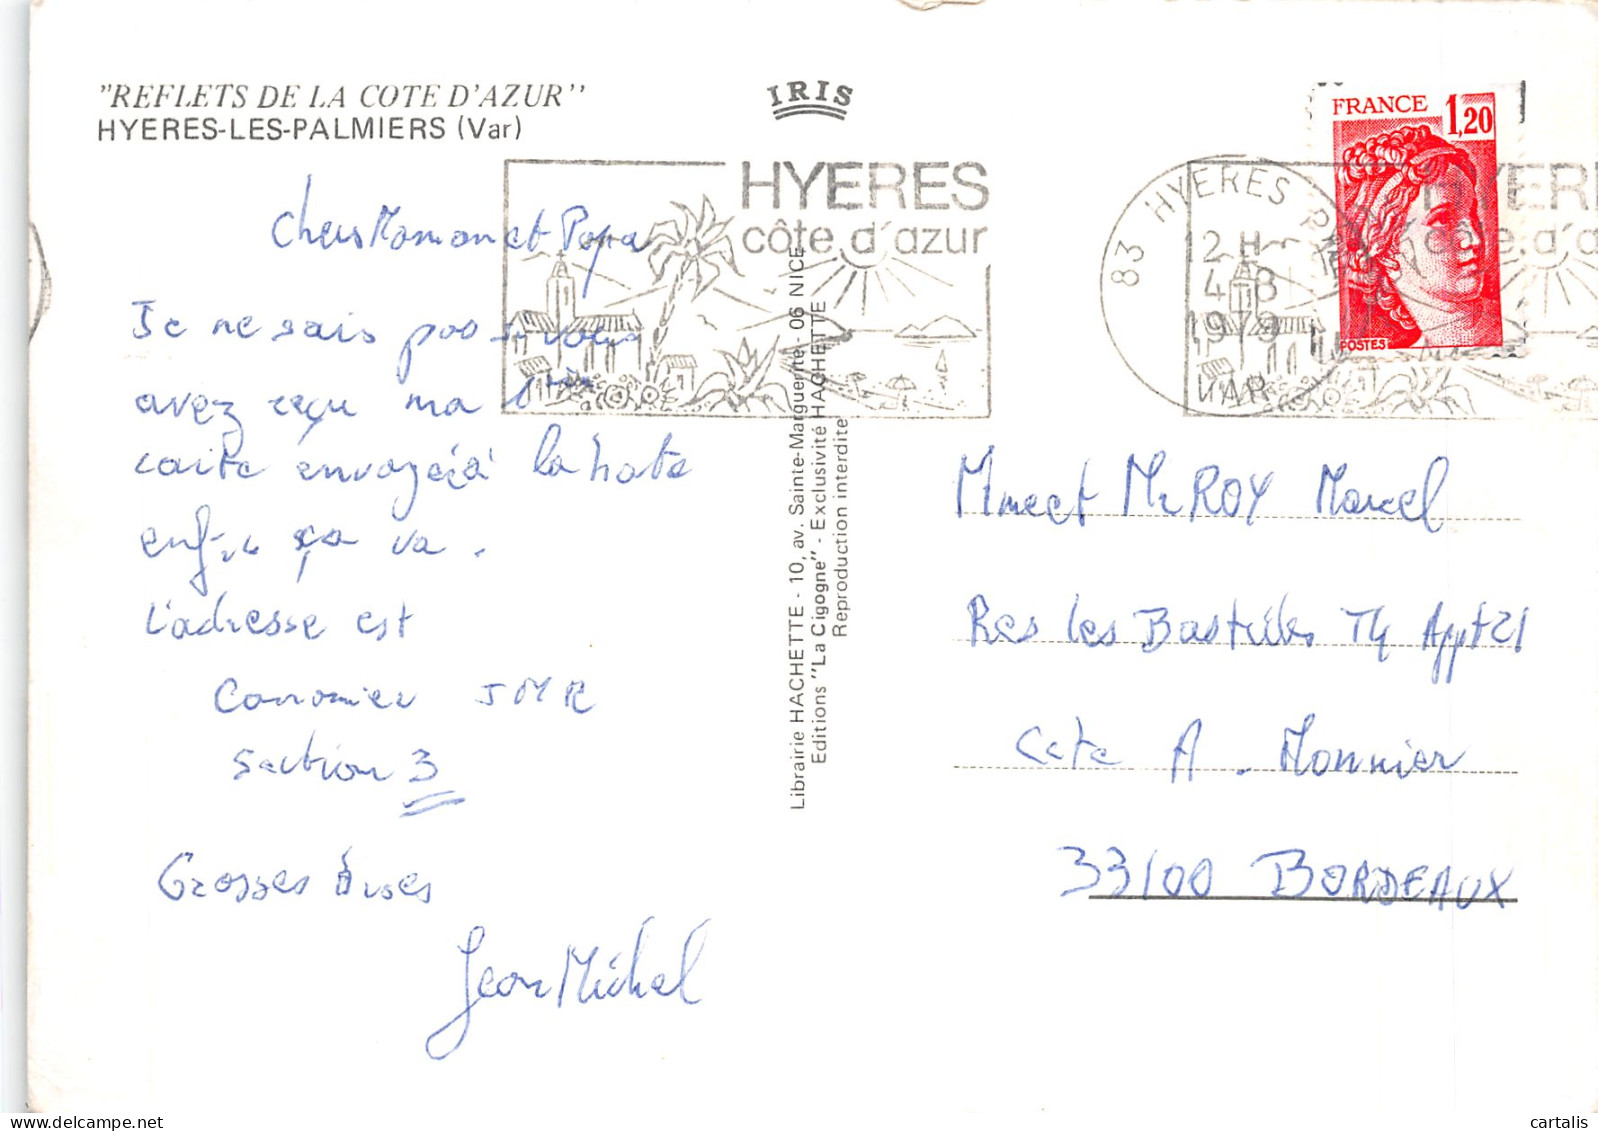 "REFLETS DE LA COTE D'AZUR"
HYERES-LES-PALMIERS (Var)
IRIS
HYERES
côte d'azur
83 HYERES
2 H
4 - 8
1979
VAR
FRANCE 1,20
POSTES
HYER
côte d'a
Chers Maman et Papa
Je ne sais pas si vous
avez reçu ma 1ère
carte envoyée à la hate
enfin ça va.
L'adresse est
Canonnier JMR
Section 3
Grosses bises
Jean Michel
Librairie HACHETTE - 10, av. Sainte-Marguerite - 06 NICE
Editions "La Cigogne" - Exclusivité HACHETTE
Reproduction interdite
Mme et Mr ROY Marcel
Res les Bastides T4 Appt 21
Cete A. Monnier
33100 BORDEAUX
cartalis